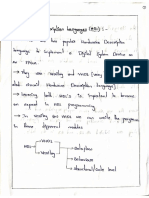 Description Languages (HDL) :-
two popular Hardware Description
Languages to implement a Digital System Device or
an FPGA.
→ They are Verilog and VHDL (very
Hardware Description Languages).
→ Learning both HDL's is important to become
an expert in HDL programming.
→ In Verilog and VHDL we can write the program
in three different models
→ VHDL
→ Verilog
→ Dataflow
→ Behavioural
→ Structural/Gate level